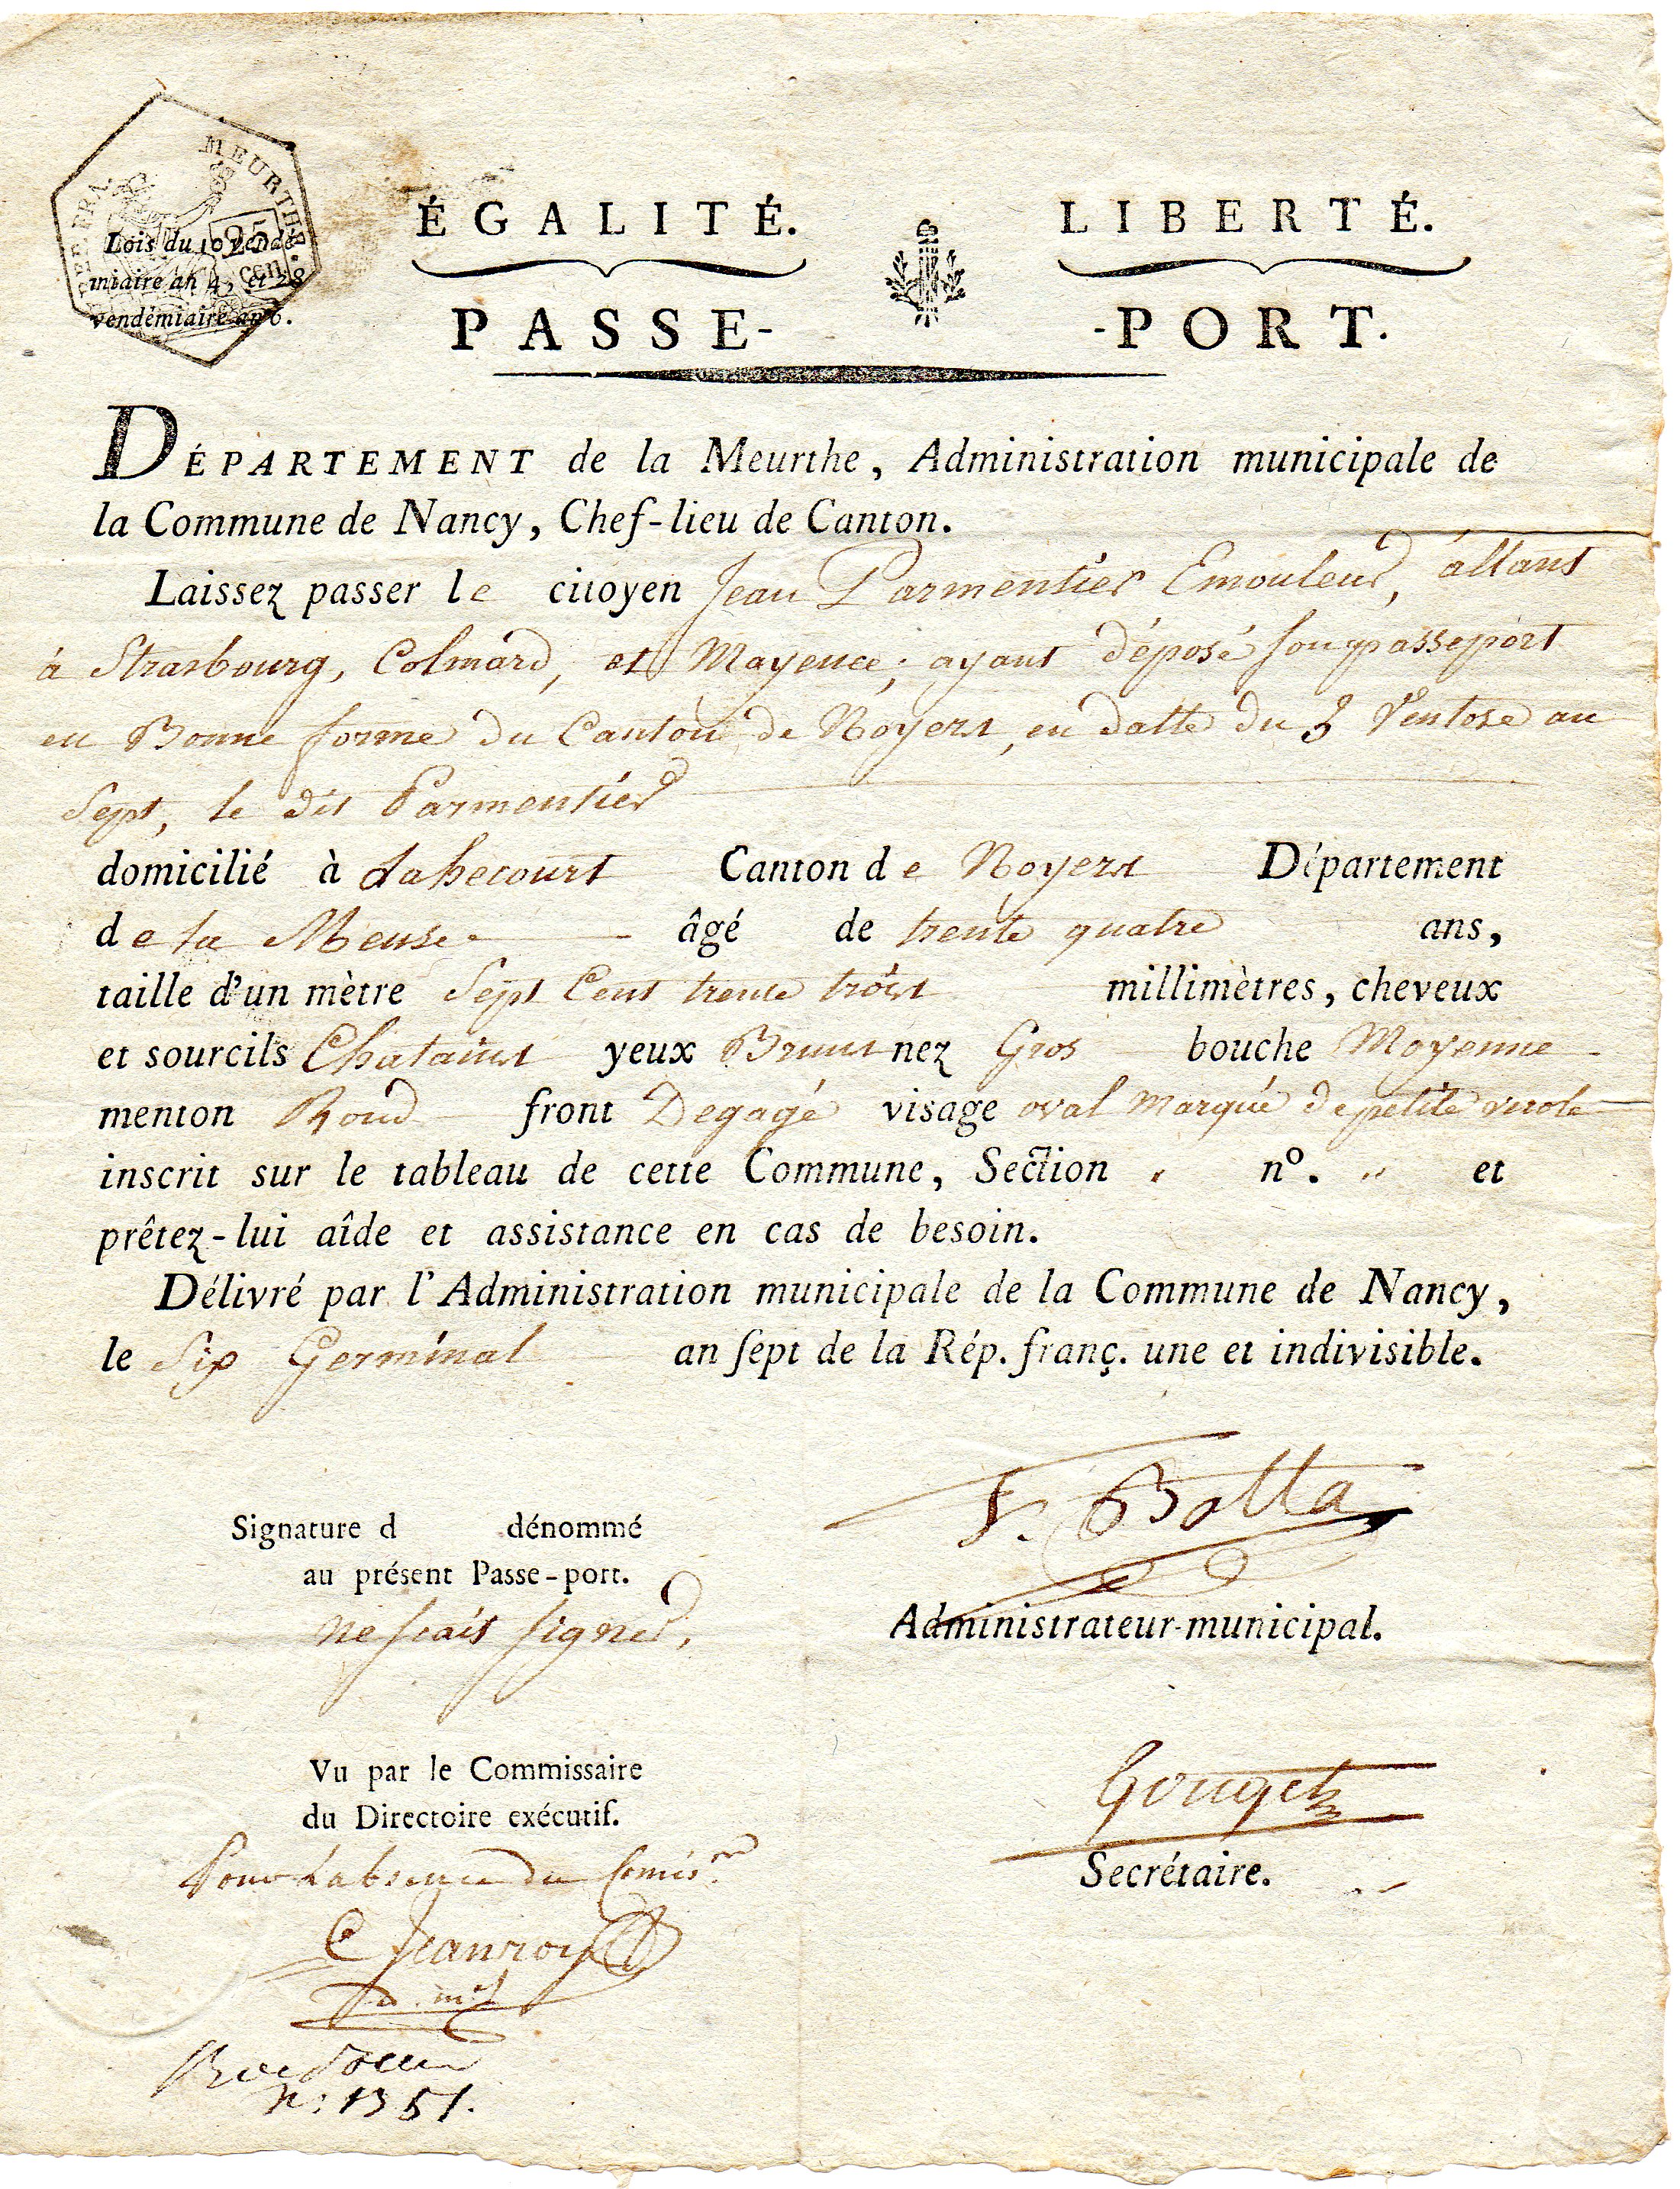 MEURTHE.
25
cen.
Lois du 10 vendé-
miaire an 4, et 28
vendémiaire an 6.
ÉGALITÉ. LIBERTÉ.
PASSE- -PORT.
DÉPARTEMENT de la Meurthe, Administration municipale de
la Commune de Nancy, Chef-lieu de Canton.
Laissez passer le citoyen Jean Parmentier Emouleur, allant
à Strasbourg, Colmard, et Mayence; ayant déposé son passeport
en Bonne forme du Canton de Noyers, en datte du 3 Ventose an
Sept, le dit Parmentier
domicilié à Lahecourt Canton de Noyers Département
de la Meuse âgé de trente quatre ans,
taille d'un mètre Sept Cent trente trois millimètres, cheveux
et sourcils Chatains yeux Bruns nez Gros bouche Moyenne
menton Rond front Degagé visage oval marqué de petite verole
inscrit sur le tableau de cette Commune, Section " nº. " et
prêtez-lui aîde et assistance en cas de besoin.
Délivré par l'Administration municipale de la Commune de Nancy,
le Six Germinal an ſept de la Rép. franç. une et indivisible.
Signature d dénommé
au présent Passe-port.
ne scait signer,
F. Botta
Administrateur-municipal.
Vu par le Commissaire
du Directoire exécutif.
Pour L'absence du Comis.re
C Jeanroy
Gouget
Secrétaire.
n: 1351.